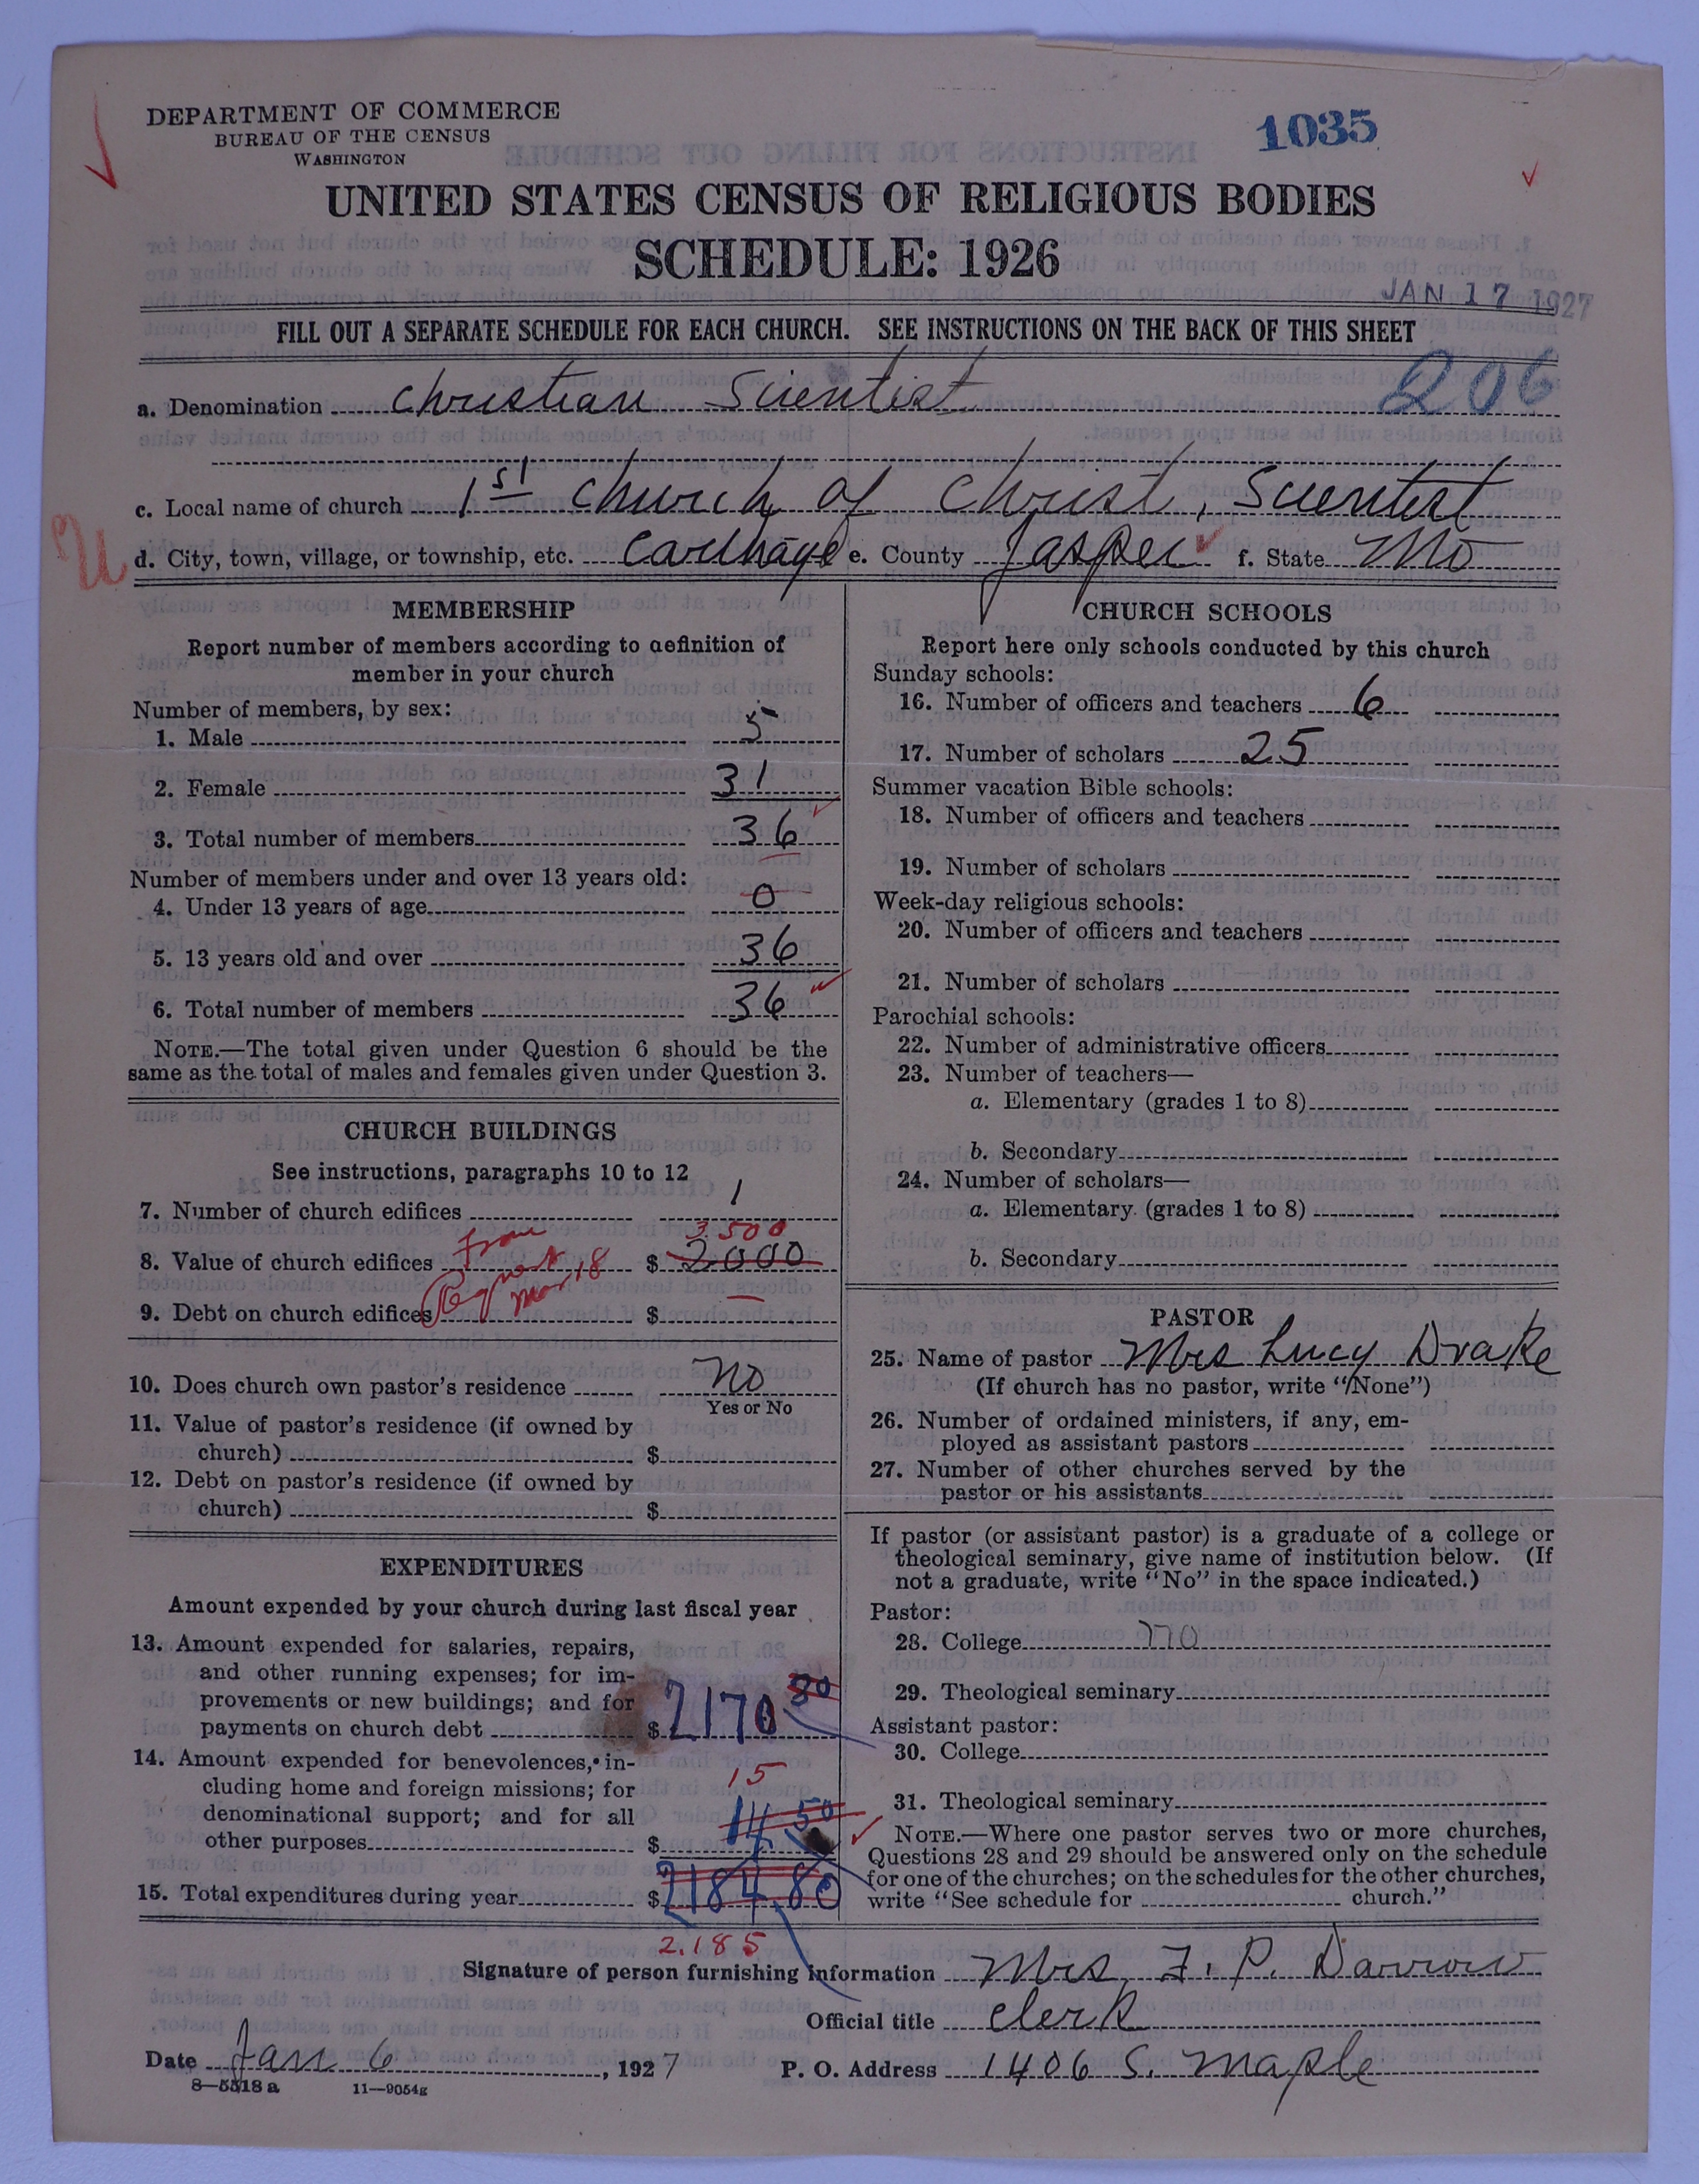 DEPARTMENT OF COMMERCE
BUREAU OF THE CENSUS
WASHINGTON
1035
UNITED STATES CENSUS OF RELIGIOUS BODIES
SCHEDULE: 1926
JAN 17 1927
FILL OUT A SEPARATE SCHEDULE FOR EACH CHURCH. SEE INSTRUCTIONS ON THE BACK OF THIS SHEET
a. Denomination Christian Scientist 206
c. Local name of church 1st Church of Christ, Scientist
U
d. City, town, village, or township, etc. Carthage e. County Jasper f. State Mo
MEMBERSHIP
Report number of members according to definition of
member in your church
Number of members, by sex:
1. Male 5
2. Female 31
3. Total number of members 36
Number of members under and over 13 years old:
4. Under 13 years of age 0
5. 13 years old and over 36
6. Total number of members 36
NOTE.—The total given under Question 6 should be the
same as the total of males and females given under Question 3.
CHURCH BUILDINGS
See instructions, paragraphs 10 to 12
7. Number of church edifices 1
3.500
8. Value of church edifices from $ 2000
Request Mar 18
9. Debt on church edifices $ —
10. Does church own pastor's residence No
Yes or No
11. Value of pastor's residence (if owned by
church) $
12. Debt on pastor's residence (if owned by
church) $
EXPENDITURES
Amount expended by your church during last fiscal year
13. Amount expended for salaries, repairs,
and other running expenses; for im-
provements or new buildings; and for
payments on church debt $ 2170 30
14. Amount expended for benevolences, in-
cluding home and foreign missions; for
15
denominational support; and for all
other purposes $ 14 50
15. Total expenditures during year $ 2184.80
2.185
CHURCH SCHOOLS
Report here only schools conducted by this church
Sunday schools:
16. Number of officers and teachers 6
17. Number of scholars 25
Summer vacation Bible schools:
18. Number of officers and teachers
19. Number of scholars
Week-day religious schools:
20. Number of officers and teachers
21. Number of scholars
Parochial schools:
22. Number of administrative officers
23. Number of teachers—
a. Elementary (grades 1 to 8)
b. Secondary
24. Number of scholars—
a. Elementary (grades 1 to 8)
b. Secondary
PASTOR
25. Name of pastor Mrs Lucy Drake
(If church has no pastor, write "None")
26. Number of ordained ministers, if any, em-
ployed as assistant pastors
27. Number of other churches served by the
pastor or his assistants
If pastor (or assistant pastor) is a graduate of a college or
theological seminary, give name of institution below. (If
not a graduate, write "No" in the space indicated.)
Pastor:
28. College no
29. Theological seminary
Assistant pastor:
30. College
31. Theological seminary
NOTE.—Where one pastor serves two or more churches,
Questions 28 and 29 should be answered only on the schedule
for one of the churches; on the schedules for the other churches,
write "See schedule for church."
Signature of person furnishing information Mrs. F. P. Darrow
Official title Clerk
Date Jan 6, 1927 P. O. Address 1406 S. Maple
8—5518 a 11—9054g